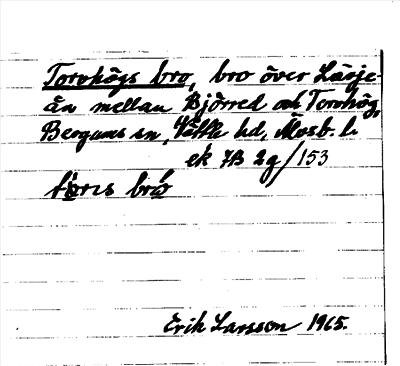 Torvhögs bro, bro över Lärje-
ån mellan Björred och Torvhög,
Bergums sn, Vättle hd, Älvsb. l.
ek 7B 2g/153
bro
Erik Larsson 1965.